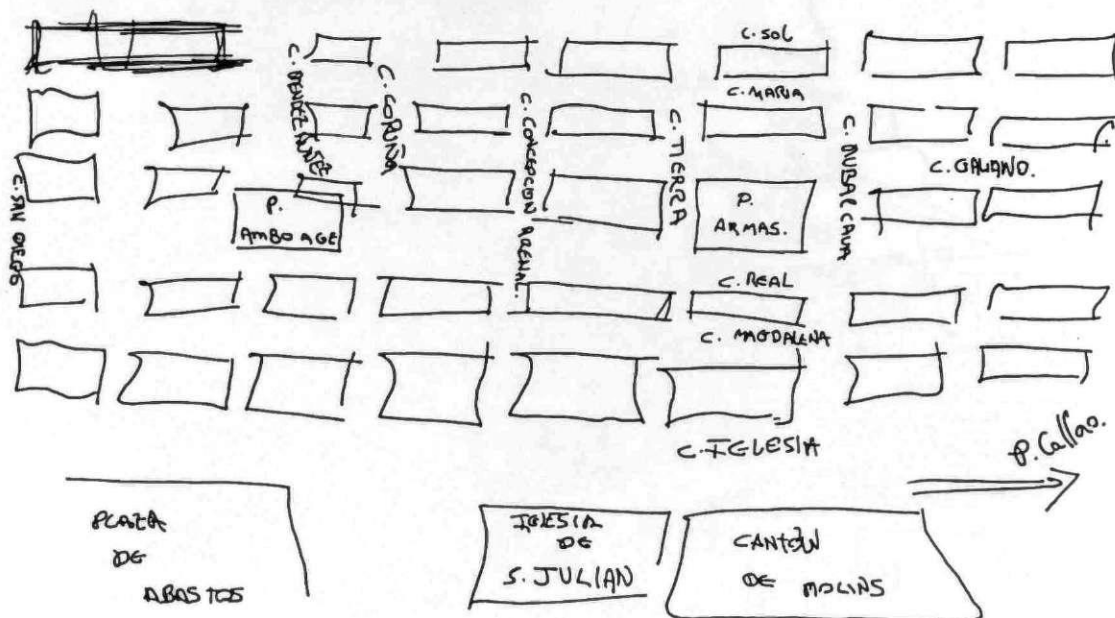 C. SOL
C. MARIA
C. MENDEZ NUÑEZ
C. CORUÑA
C. CONCEPCION ARENAL.
C. TIERRA
C. DUBALCAUA
C. GALIANO.
C. SAN DIEGO
P.
AMBOAGE
P.
ARMAS.
C. REAL
C. MAGDALENA
C. IGLESIA
P. Callao.
PLAZA
DE
ABASTOS
IGLESIA
DE
S. JULIAN
CANTÓN
DE MOLINS